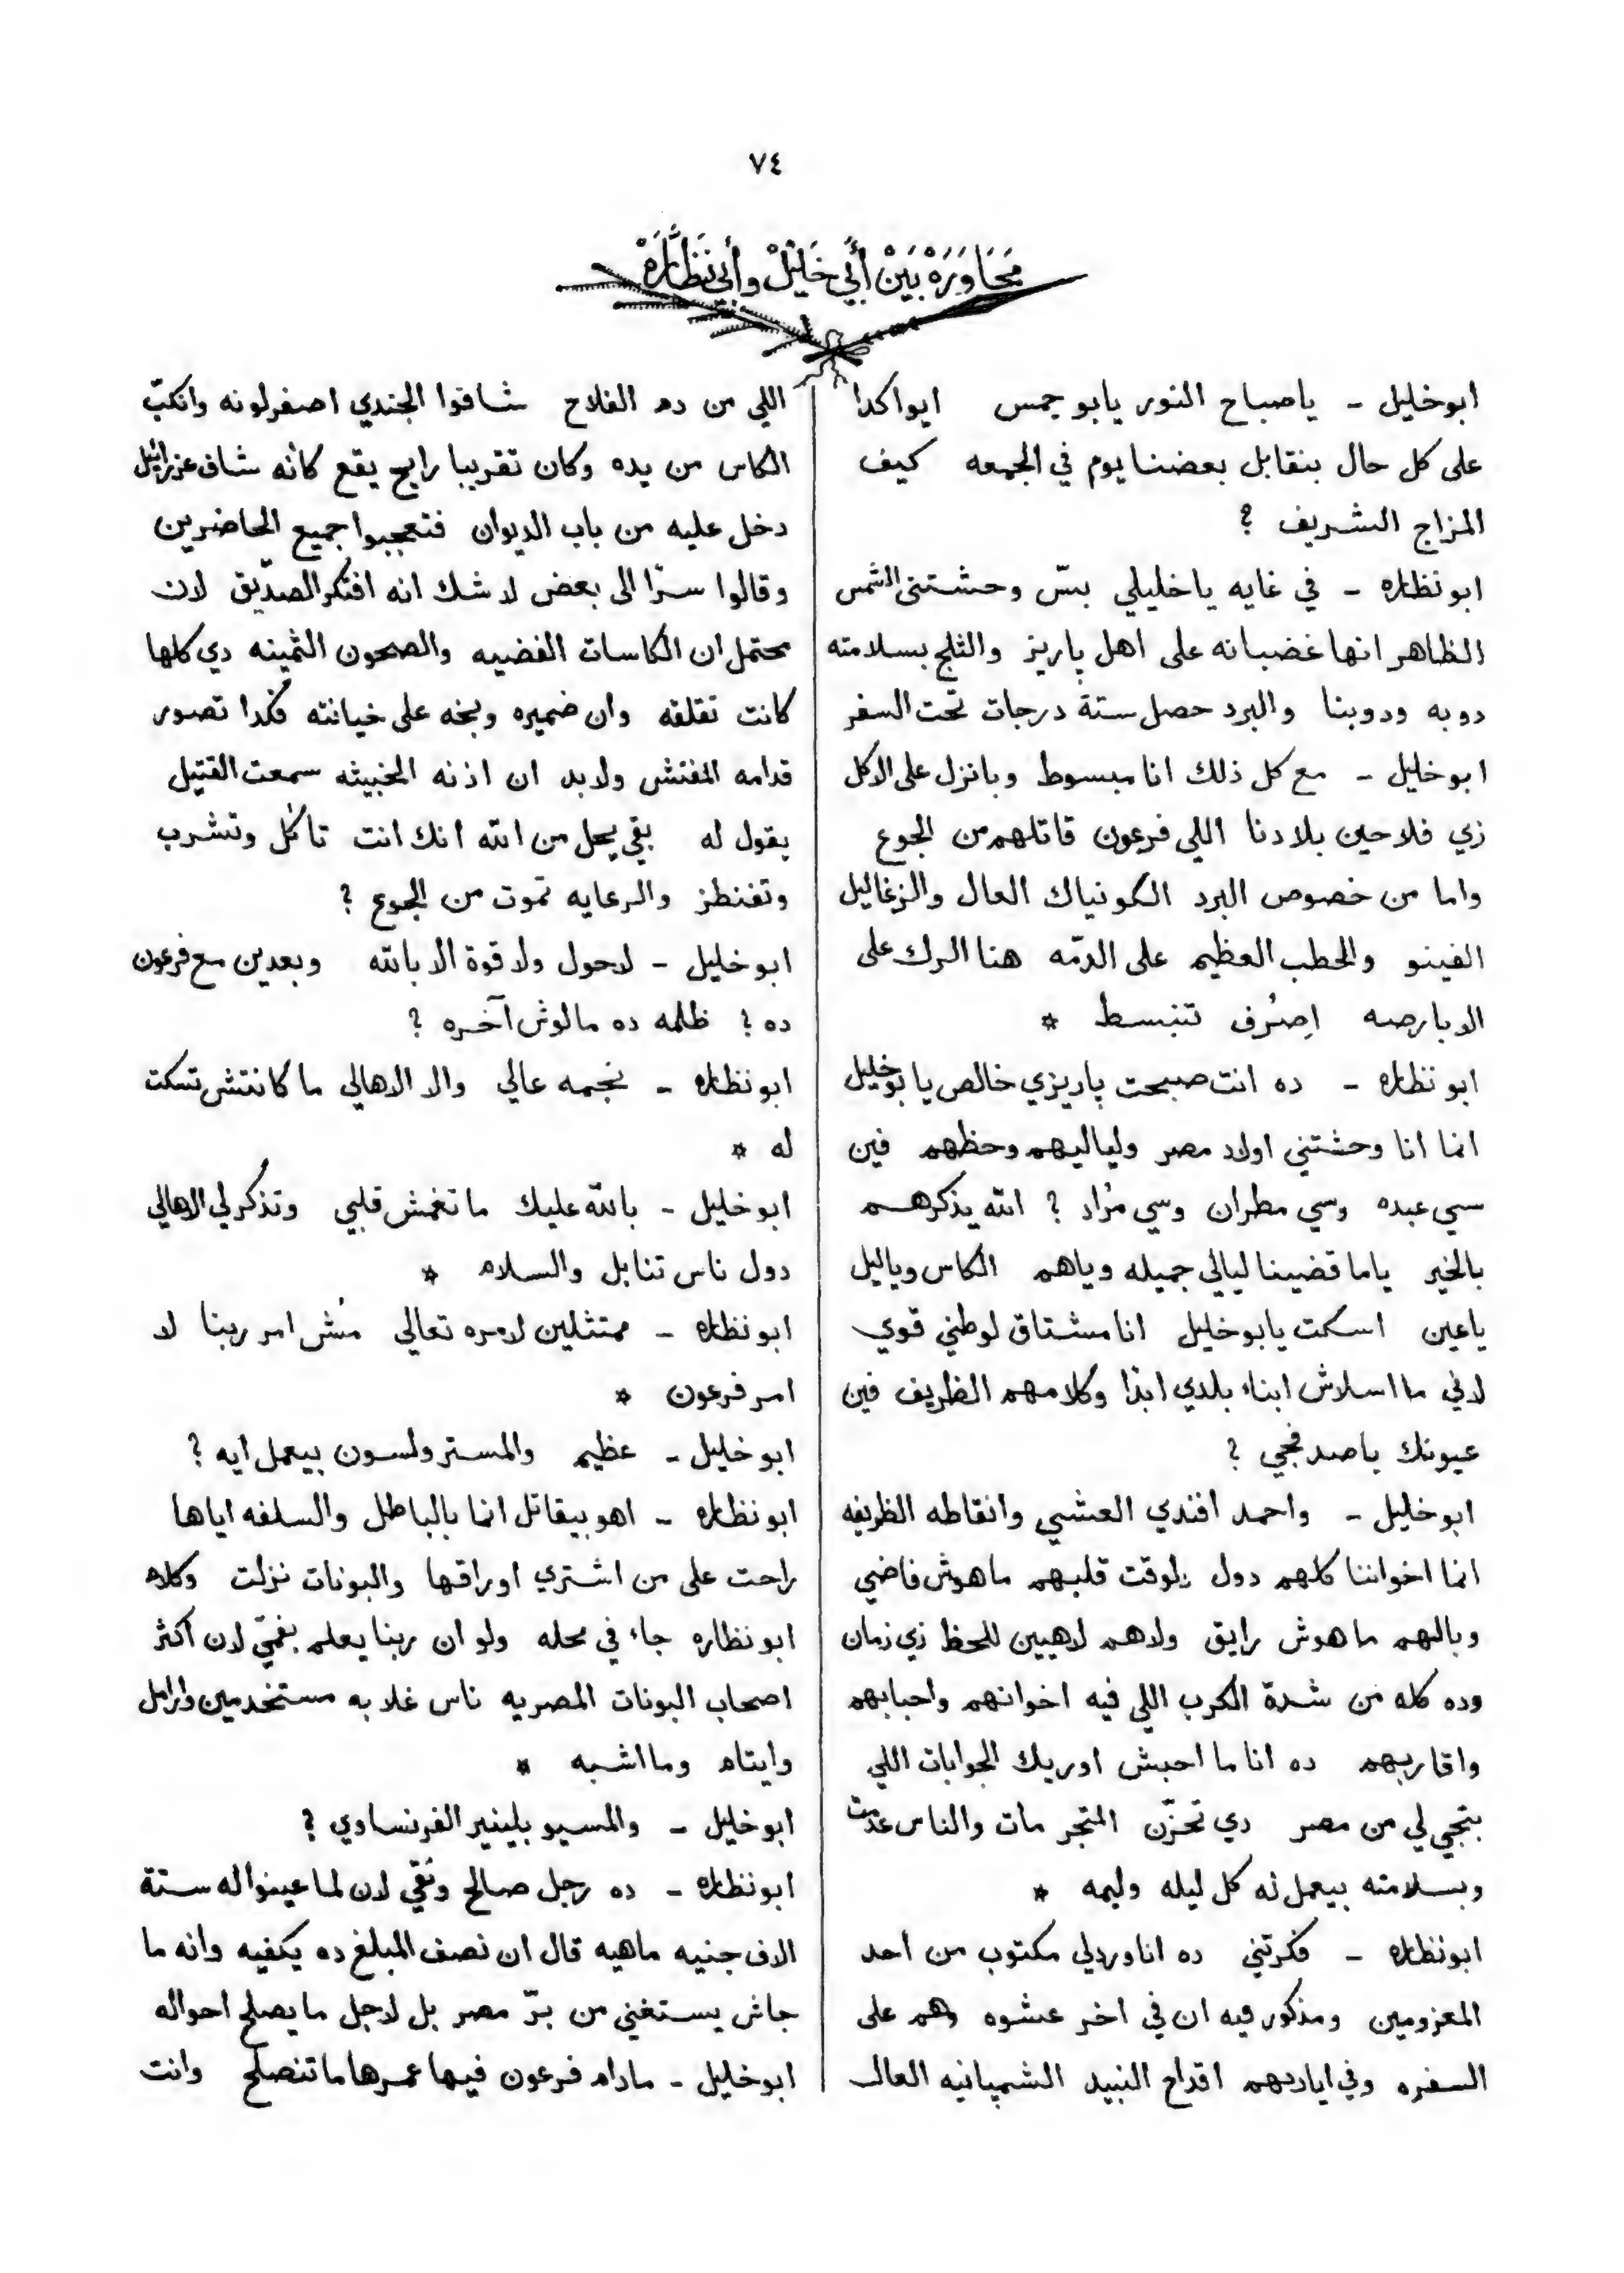 ٧٤
مَحَاوَرَهْ بَيْنْ أَبِي خَلِيْلْ وأبي نَظَّارَهْ
ابوخليل - ياصباح النور يابوجمس ايواكدا
على كل حال بنقابل بعضنا يوم في الجمعه كيف
المزاج الشريف ؟
ابونظاره - في غايه ياخليلي بسّ وحشتني الشمس
الظاهر انها غضبانه على اهل پاريز والثلج بسلامته
دوبه ودوبنا والبرد حصل ستة درجات تحت السفر
ابوخليل - مع كل ذلك انا مبسوط وبانزل على الاكل
زي فلاحين بلادنا اللي فرعون قاتلهم من الجوع
واما من خصوص البرد الكونياك العال والزغاليل
الفينو والحطب العظيم على الدمّه هنا البرك على
الدبارصه اِصرُف تنبسط *
ابو نظاره - ده انت صبحت پاريزي خالص يا بوخليل
انما انا وحشتني اولاد مصر ولياليهم وحظهم فين
سي عبده وسي مطران وسي مُراد ؟ الله يذكرهم
بالخير ياما قضينا ليالي جميله وياهم الكاس وياليل
ياعين اسكت يابوخليل انا مشتاق لوطني قوي
لاني ما اسلاش ابناء بلدي ابدًا وكلامهم الظريف فين
عيونك ياصدفجي ؟
ابوخليل - واحمد افندي العشي وانقاطه الظريفه
انما اخواننا كلهم دول دلوقت قلبهم ماهوش فاضي
وبالهم ماهوش رايق ولاهم لاهيين للحظ زي زمان
وده كله من شدة الكرب اللي فيه اخوانهم واحبابهم
واقاربهم ده انا ما احبش اوريك الجوابات اللي
بتجي لي من مصر دي تحزّن المتجر مات والناس عدمت
وبسلامته بيعمل له كل ليله وليمه *
ابونظاره - فكرتني ده انا وردلي مكتوب من احد
المعزومين ومذكور فيه ان في اخر عشوه وهم على
السفره وفي اياديهم اقداح النبيد الشمپانيه العال
اللي من دم الفلاح شافوا الجندي اصفر لونه وانكبّ
الكاس من يده وكان تقريبا رايح يقع كأنه شاف عزرائيل
دخل عليه من باب الديوان فتعجبوا جميع الحاضرين
وقالوا سرّا الى بعض لا شك انه افتكر الصدّيق لان
يحتمل ان الكاسات الفضيه والصحون الثمينه دي كلها
كانت تقلقه وان ضميره وبخه على خيانته فكدا تصور
قدامه المفتش ولابد ان اذنه الخبيثه سمعت القتيل
يقول له بقي يحل من الله انك انت تاكل وتشرب
وتفنطز والرعايه تموت من الجوع ؟
ابوخليل - لاحول ولا قوة الا بالله وبعدين مع فرعون
ده ؟ ظلمه ده مالوش آخره ؟
ابونظاره - نجمه عالي والا الاهالي ما كانتش تسكت
له *
ابوخليل - بالله عليك ماتغمش قلبي وتذكر لي الاهالي
دول ناس تنابل والسلام *
ابونظاره - ممتثلين لامره تعالي مُش امر ربنا لا
امر فرعون *
ابوخليل - عظيم والمستر ولسون بيعمل ايه ؟
ابونظاره - اهو بيقاتل انما بالباطل والسلفه اياها
راحت على من اشتري اوراقها والبونات نزلت وكلام
ابونظاره جاء في محله ولو ان ربنا يعلم بغمّي لان اكثر
اصحاب البونات المصريه ناس غلابه مستخدمين وارامل
وايتام وما اشبه *
ابوخليل - والمسيو بلينير الفرنساوي ؟
ابونظاره - ده رجل صالح ونقي لان لما عينوا له ستة
الاف جنيه ماهيه قال ان نصف المبلغ ده يكفيه وانه ما
جاش يستغني من برّ مصر بل لاجل ما يصلح احواله
ابوخليل - مادام فرعون فيها عمرها ماتنصلح وانت